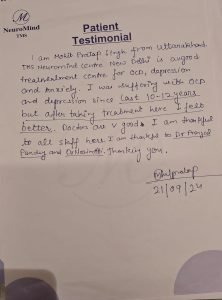 NeuroMind
TMS
Patient
Testimonial
I am Mohit Pratap Singh from Uttarakhand.
TMS Neuromind centre New Delhi is a good
treatment centre for OCD, depression
and Anxiety. I was suffering with OCD
and depression since last 10-12 years
but after taking treatment here I feel
better. Doctors are v good. I am thankful
to all staff here I am thankful to Dr Pragya
Pandey and. Thanking you.
21/09/24